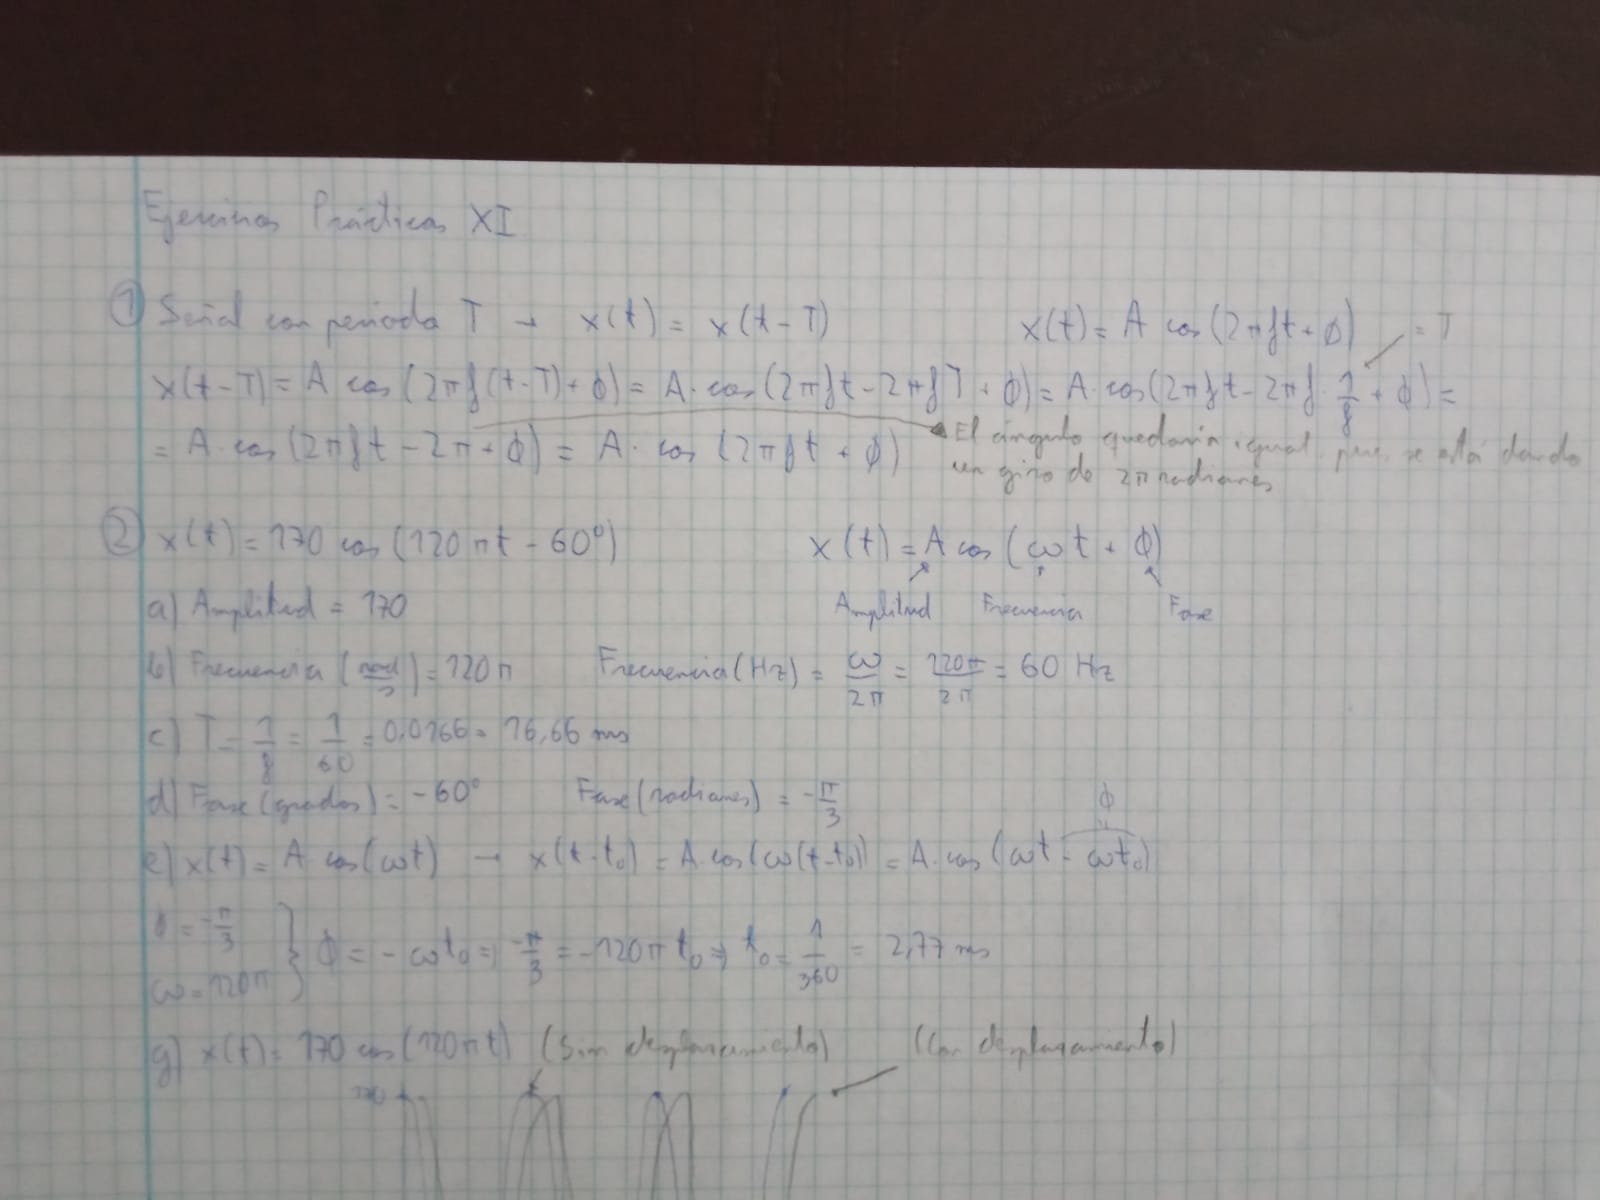 Ejercicios Prácticas XI
① Señal con periodo T → x(t) = x(t-T)    x(t) = A cos(2πft + φ)    = T
x(t-T) = A cos(2πf(t-T)+φ) = A·cos(2πft-2πfT+φ) = A·cos(2πft-2πf·1/f+φ) =
= A·cos(2πft-2π+φ) = A·cos(2πft+φ)    El ángulo quedaría igual pues se está dando
un giro de 2π radianes
② x(t) = 170 cos(120πt - 60º)    x(t) = A cos(ωt + φ)
a) Amplitud = 170    Amplitud    Frecuencia    Fase
b) Frecuencia (rad/s) = 120π    Frecuencia (Hz) = ω/2π = 120π/2π = 60 Hz
c) T = 1/f = 1/60 = 0,0166 = 16,66 ms
d) Fase (grados) = -60º    Fase (radianes) = -π/3    φ
e) x(t) = A cos(ωt) → x(t-t₀) = A·cos(ω(t-t₀)) = A·cos(ωt - ωt₀)
φ = -π/3
ω = 120π } φ = -ωt₀ ⇒ -π/3 = -120π t₀ ⇒ t₀ = 1/360 = 2,77 ms
g) x(t) = 170 cos(120πt) (Sin desplazamiento)    (Con desplazamiento)
170